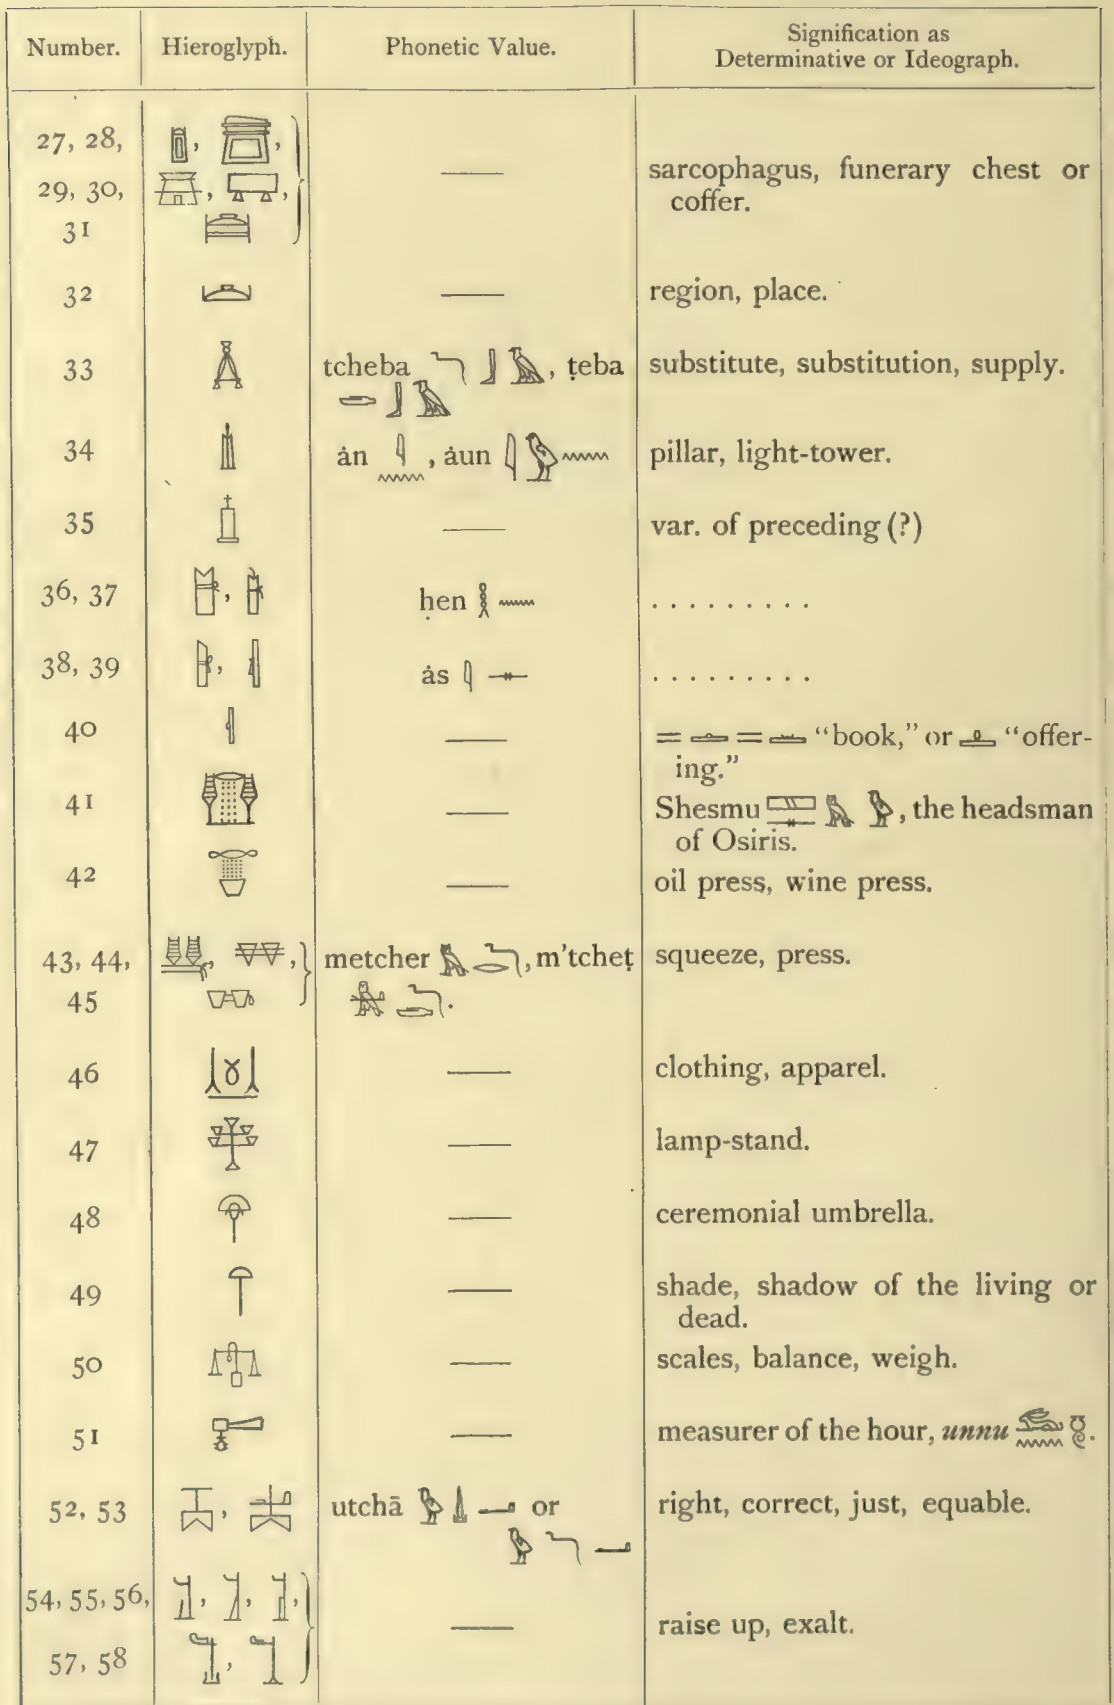 Number. Hieroglyph. Phonetic Value. Signification as
Determinative or Ideograph.
27, 28,
29, 30, — sarcophagus, funerary chest or
coffer.
31
32 — region, place.
33 tcheba 𓆓𓃀𓄿, ṭeba substitute, substitution, supply.
𓂧𓃀𓄿
34 ȧn 𓇋𓈖, ȧun 𓇋𓅱𓈖 pillar, light-tower.
35 — var. of preceding (?)
36, 37 ḥen 𓎛𓈖 . . . . . . . . .
38, 39 ȧs 𓇋𓊃 . . . . . . . . .
40 — = = “book,” or “offer-
ing.”
41 — Shesmu 𓈙𓊃𓅓𓅱, the headsman
of Osiris.
42 — oil press, wine press.
43, 44, metcher, m’tcheṭ squeeze, press.
45
46 — clothing, apparel.
47 — lamp-stand.
48 — ceremonial umbrella.
49 — shade, shadow of the living or
dead.
50 — scales, balance, weigh.
51 — measurer of the hour, unnu 𓃹𓈖𓏌.
52, 53 utchā 𓅱𓍑𓂝 or right, correct, just, equable.
𓅱𓆓𓂝
54, 55, 56,
— raise up, exalt.
57, 58